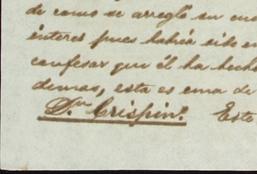 de como se arregló su
interes pues habia sido en
confesar que él ha hecho
demas, esta es una de
Dn Crispin. Este